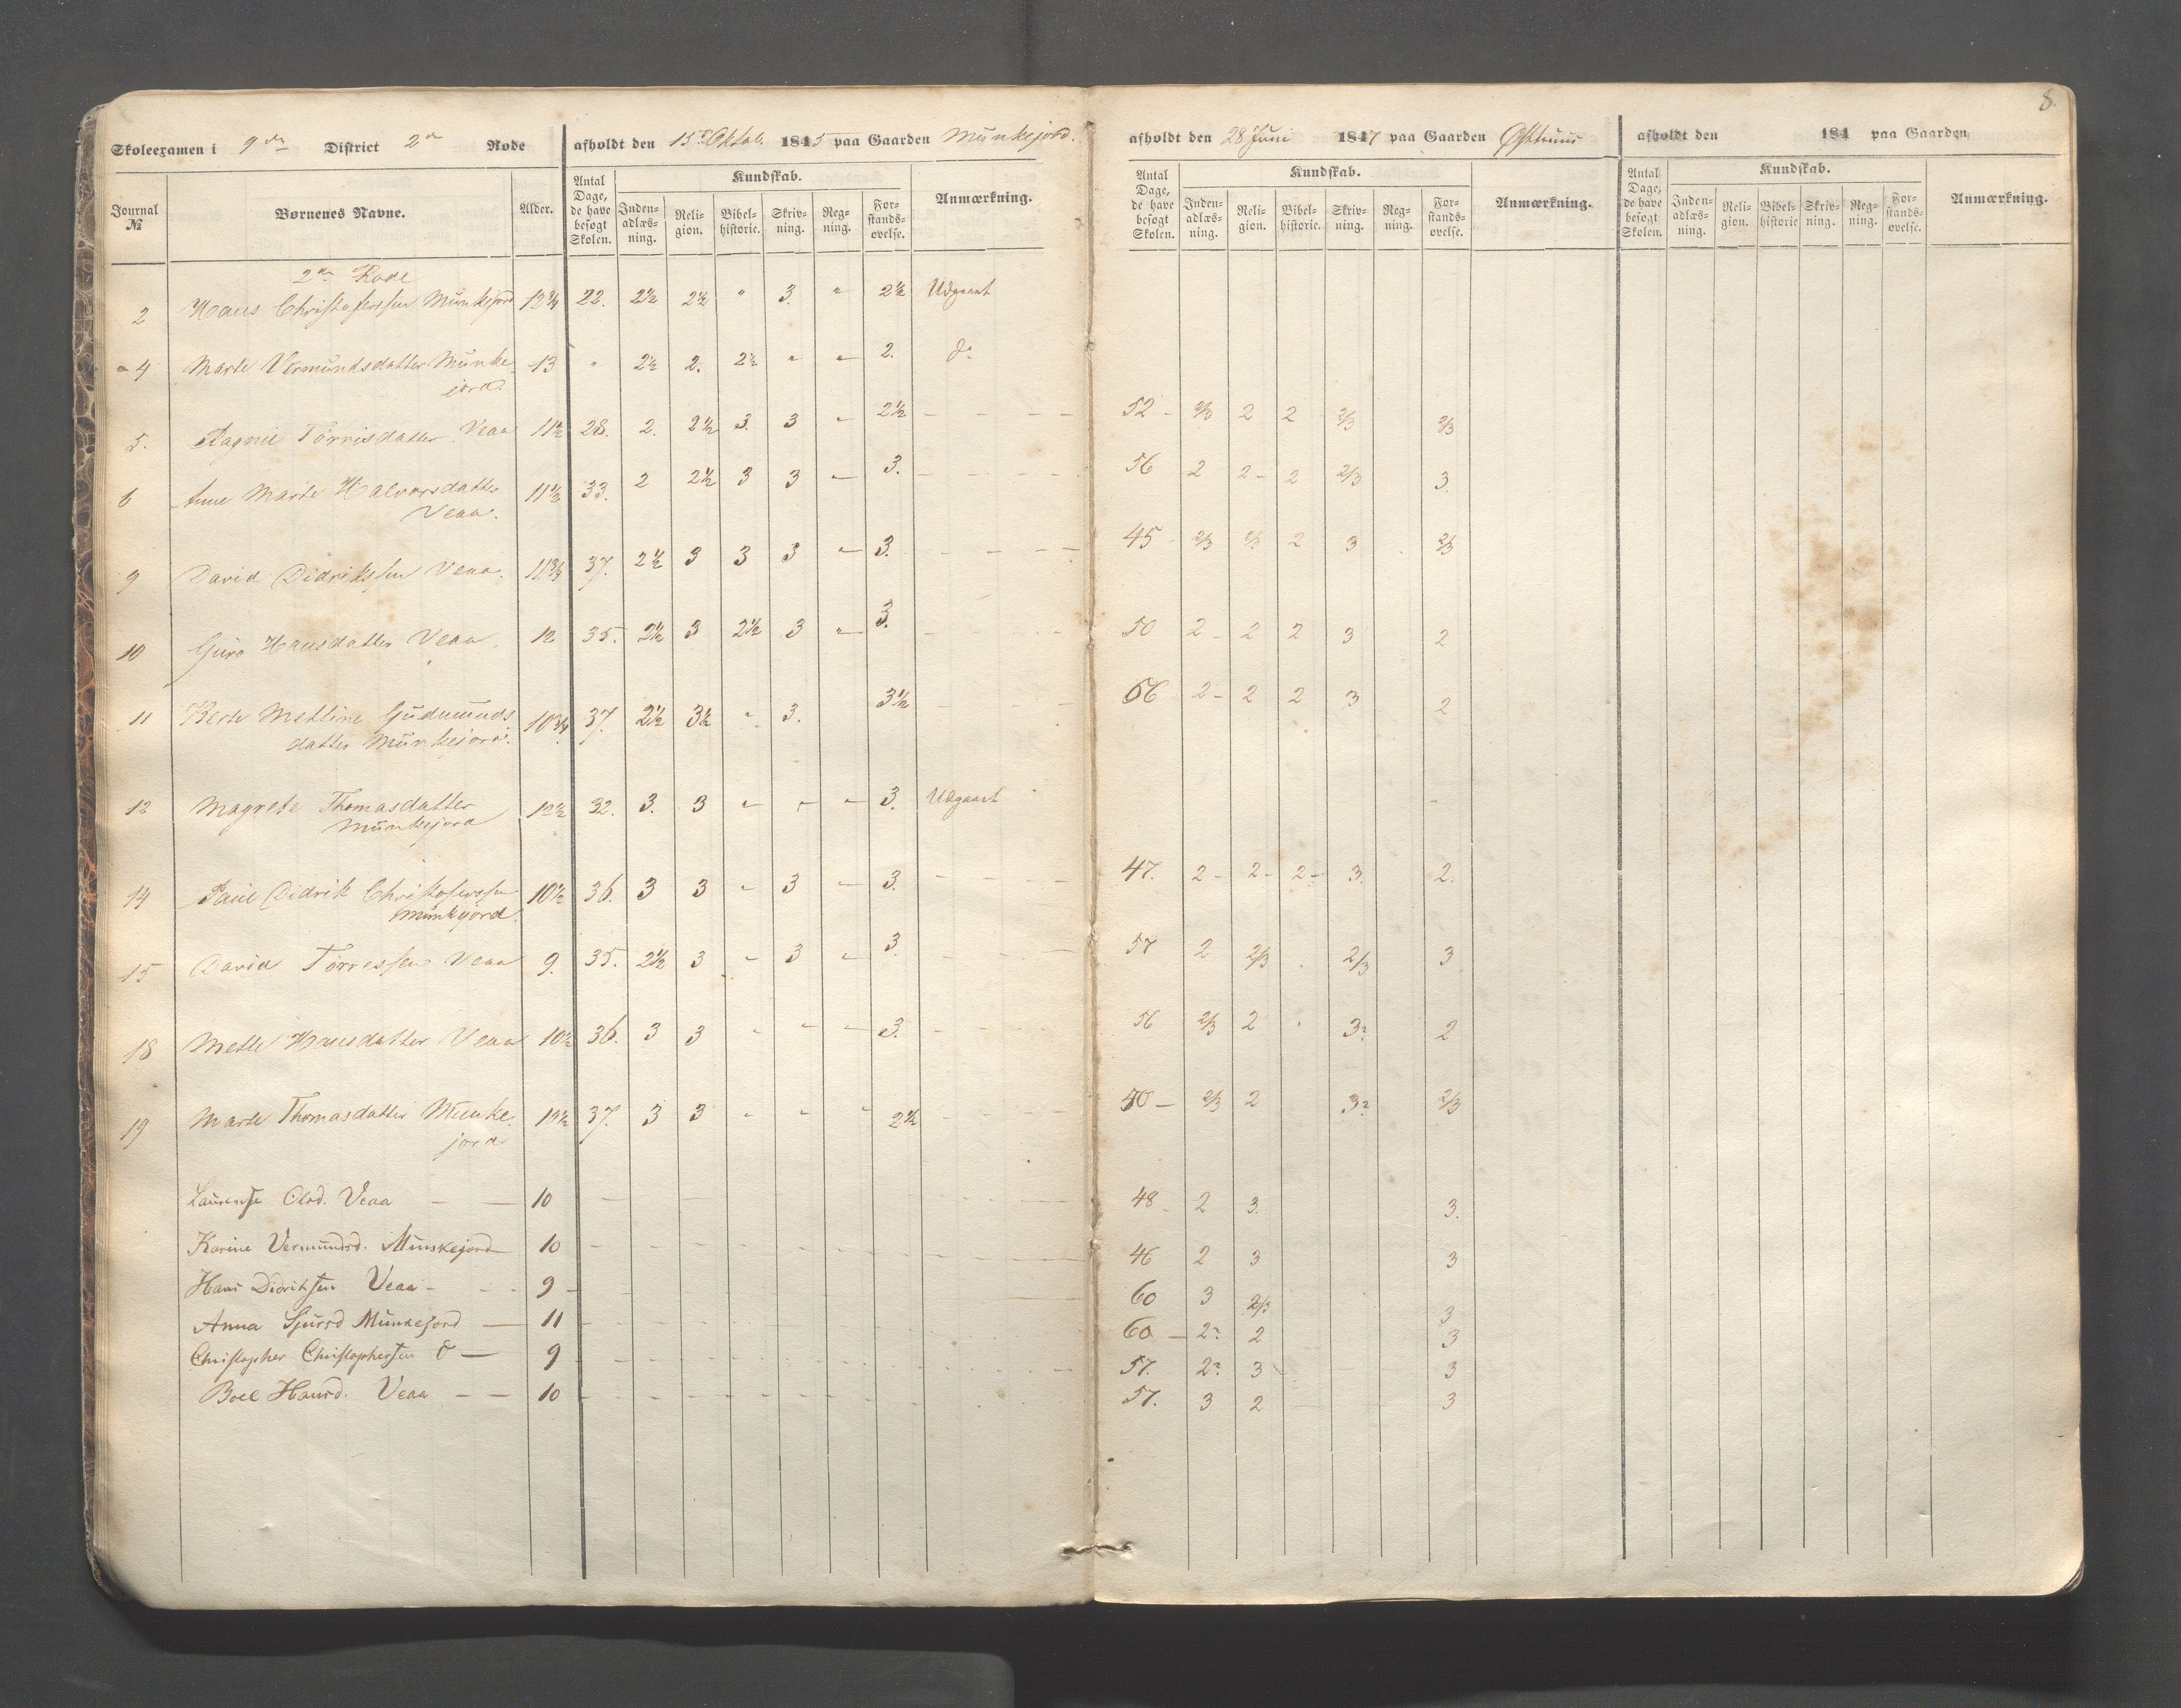 8.
Skoleexamen i 9de District 2den Rode afholdt den 15de Oktob. 1845 paa Gaarden Munkejord. afholdt den 28 Juni 1847 paa Gaarden afholdt den 184 paa Gaarden
Journal № Børnenes Navne. Alder. Antal Dage, de have besøgt Skolen. Kundskab. Inden-adlæs-ning. Reli-gion. Bibel-historie. Skriv-ning. Reg-ning. For-stands-øvelse. Anmærkning. Antal Dage, de have besøgt Skolen. Kundskab. Inden-adlæs-ning. Reli-gion. Bibel-historie. Skriv-ning. Reg-ning. For-stands-øvelse. Anmærkning. Antal Dage, de have besøgt Skolen. Kundskab. Inden-adlæs-ning. Reli-gion. Bibel-historie Skriv-ning. Reg-ning. For-stands-øvelse. Anmærkning.
2den Rode
2 Hans Christofersen Munkejord 12¾ 22. 2½ 2½ " 3. " 2½ Udgaaet
4 Marte Vermundsdatter Munke- 13 " 2½ 2. 2½ " " 2. do
jord.
5. Ragnil Tørrisdatter Veaa 11½ 28. 2. 2½ 3. 3 " 2½ — — — — 52 — 2/3 2 2 2/3 2/3
6 Anne Marte Halvorsdatter 11½ 33. 2 2½ 3 3 — 3. — — — — 56 2 2 — 2 2/3 3.
Veaa.
9 David Didriksen Veaa. 11¾ 37. 2½ 3 3 3 — 3. — — — — 45 — 2/3 2/3 2 3 2/3
10 Guro Hansdatter Veaa. 12 35. 2½ 3 2½ 3 " 3. — — — — 50 2 — 2 2 3 2
11 Berte Methine Gudmunds 10¾ 37. 2½ 3½ " 3. 3½ — — — — 66 2 — 2 2 3 2
datter Munkejord.
12 Magrete Thomasdatter 12½ 32. 3. 3 " " " 3. Udgaaet
Munkejord
14 Paul Didrik Christofersen 10½ 36. 3 3 " 3 — 3. — — — — 47. 2 — 2 — 2 — 3. 2.
Munkejord.
15 David Tørressen Veaa 9. 35. 2½ 3 " 3 " 3 — — — — 57 2 2/3 . 2/3 3
18 Mette Hansdatter Veaa 10½ 36. 3 3 " " — 3. — — — 56 2/3 2 . 3? 2
19 Marte Thomasdatter Munke- 10½ 37. 3 3 " " " 2½ — — — — 50 — 2/3 2 3? 2/3
jord
Laurentse Olsd. Veaa — — 10 — 48 — 2 3. 3.
Karine Vermundsd. Munkejord 10 — 46 2 3 3
Hans Didriksen Veaa — 9 — 60 3 2/3 3
Anna Sjursd Munkejord — 11 60 — 2? 2 3
Christopher Christophersen do — 9 57. 2? 3 3
Boel Hansd. Veaa — — 10 57. 3 2 3